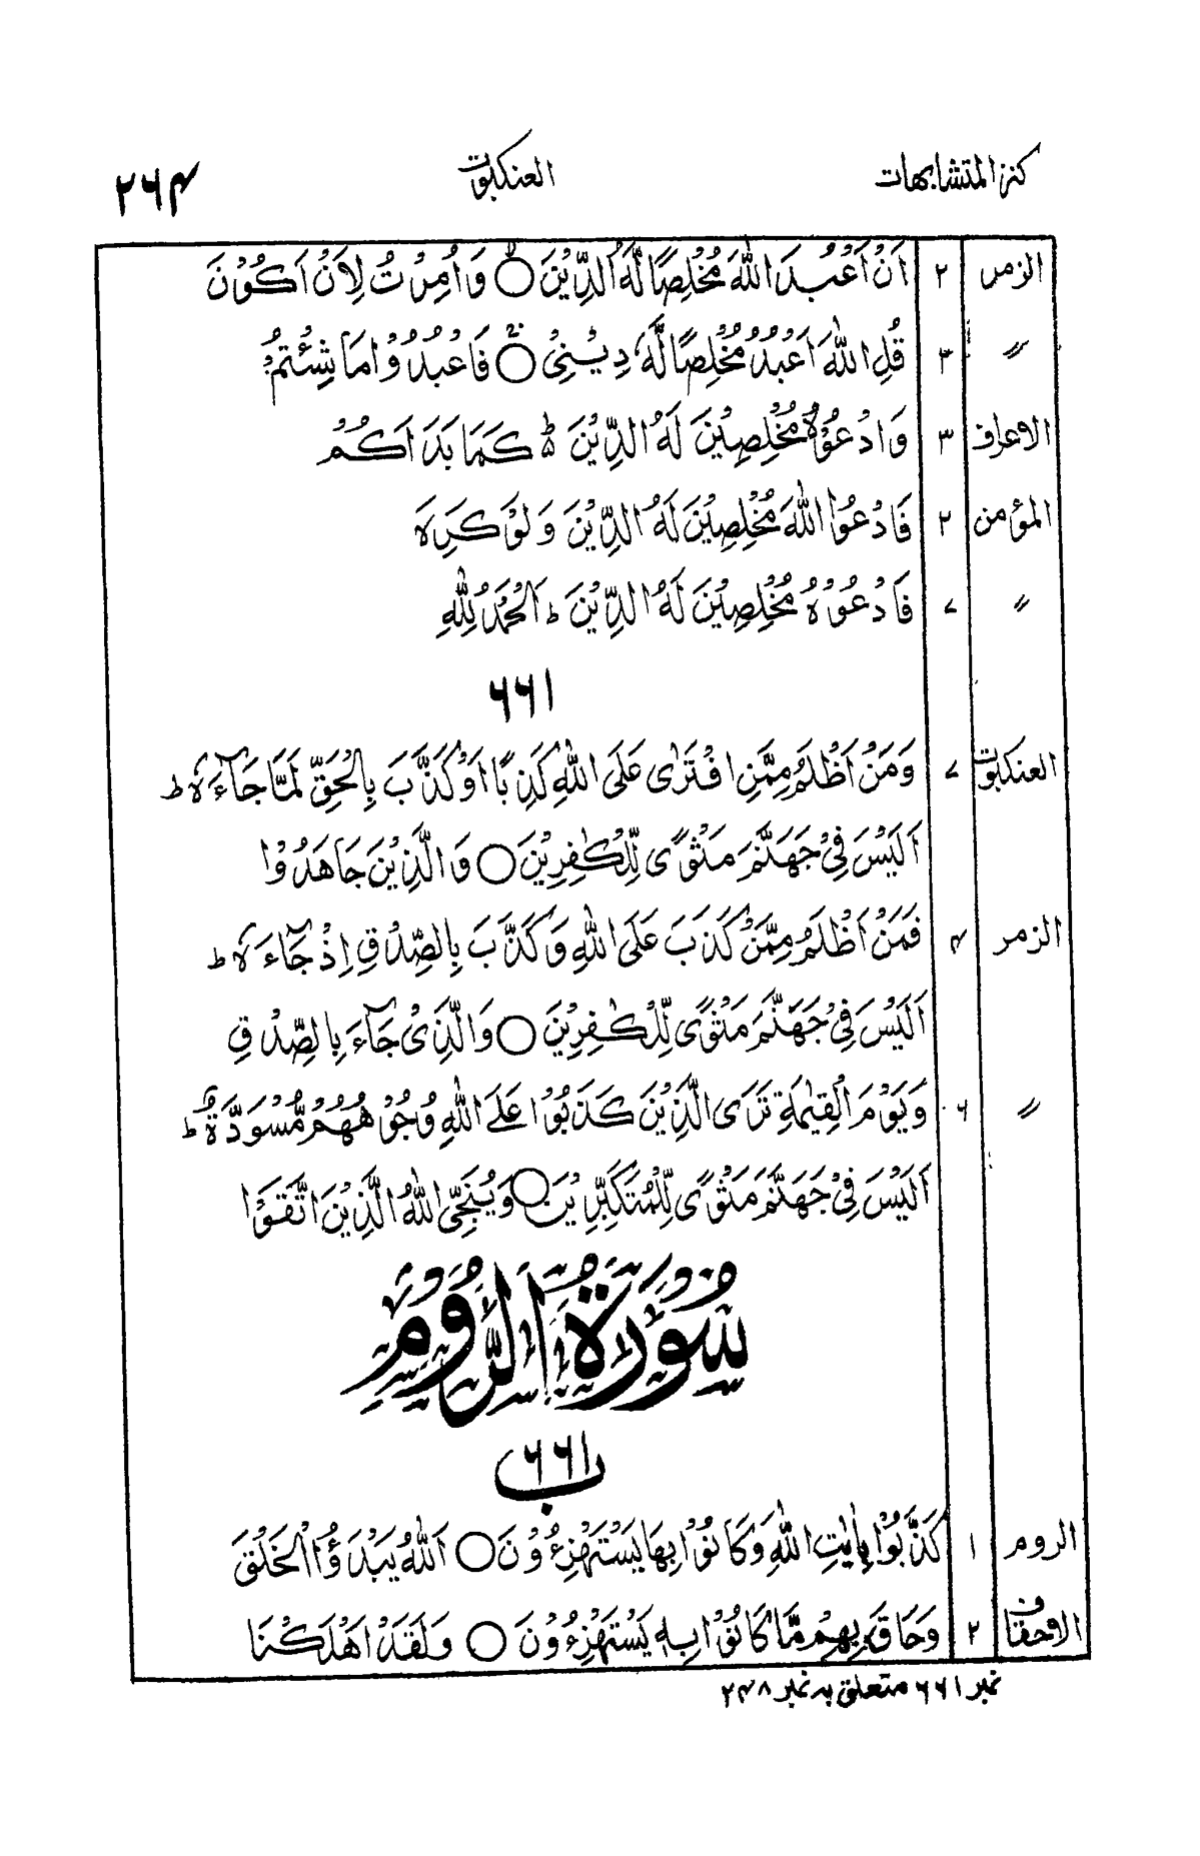 كنز المتشابهات العنكبوت ۲۶۴
الزمر ۲ اَنْ اَعْبُدَ اللّٰهَ مُخْلِصًا لَّهُ الدِّيْنَ ○ وَاُمِرْتُ لِاَنْ اَكُوْنَ
〃 ۳ قُلِ اللّٰهَ اَعْبُدُ مُخْلِصًا لَّهٗ دِيْنِيْ ○ فَاعْبُدُوْا مَا شِئْتُمْ
الاعراف ۳ وَادْعُوْهُ مُخْلِصِيْنَ لَهُ الدِّيْنَ ؕ كَمَا بَدَاَكُمْ
المؤمن ۲ فَادْعُوا اللّٰهَ مُخْلِصِيْنَ لَهُ الدِّيْنَ وَلَوْ كَرِهَ
〃 ۷ فَادْعُوْهُ مُخْلِصِيْنَ لَهُ الدِّيْنَ ؕ اَلْحَمْدُ لِلّٰهِ
۶۶۱
العنكبوت ۷ وَمَنْ اَظْلَمُ مِمَّنِ افْتَرٰى عَلَى اللّٰهِ كَذِبًا اَوْ كَذَّبَ بِالْحَقِّ لَمَّا جَآءَهٗ ؕ
اَلَيْسَ فِيْ جَهَنَّمَ مَثْوًى لِّلْكٰفِرِيْنَ ○ وَالَّذِيْنَ جَاهَدُوْا
الزمر ۴ فَمَنْ اَظْلَمُ مِمَّنْ كَذَبَ عَلَى اللّٰهِ وَكَذَّبَ بِالصِّدْقِ اِذْ جَآءَهٗ ؕ
اَلَيْسَ فِيْ جَهَنَّمَ مَثْوًى لِّلْكٰفِرِيْنَ ○ وَالَّذِيْ جَآءَ بِالصِّدْقِ
〃 ۶ وَيَوْمَ الْقِيٰمَةِ تَرَى الَّذِيْنَ كَذَبُوْا عَلَى اللّٰهِ وُجُوْهُهُمْ مُّسْوَدَّةٌ ؕ
اَلَيْسَ فِيْ جَهَنَّمَ مَثْوًى لِّلْمُتَكَبِّرِيْنَ ○ وَيُنَجِّى اللّٰهُ الَّذِيْنَ اتَّقَوْا
سُوْرَةُ الرُّوْمِ
۶۶۱ ب
الروم ۱ كَذَّبُوْا بِاٰيٰتِ اللّٰهِ وَكَانُوْا بِهَا يَسْتَهْزِءُوْنَ ○ اَللّٰهُ يَبْدَؤُا الْخَلْقَ
الاحقاف ۲ وَحَاقَ بِهِمْ مَّا كَانُوْا بِهٖ يَسْتَهْزِءُوْنَ ○ وَلَقَدْ اَهْلَكْنَا
نمبر ۶۶۱ متعلق بہ نمبر ۲۴۸